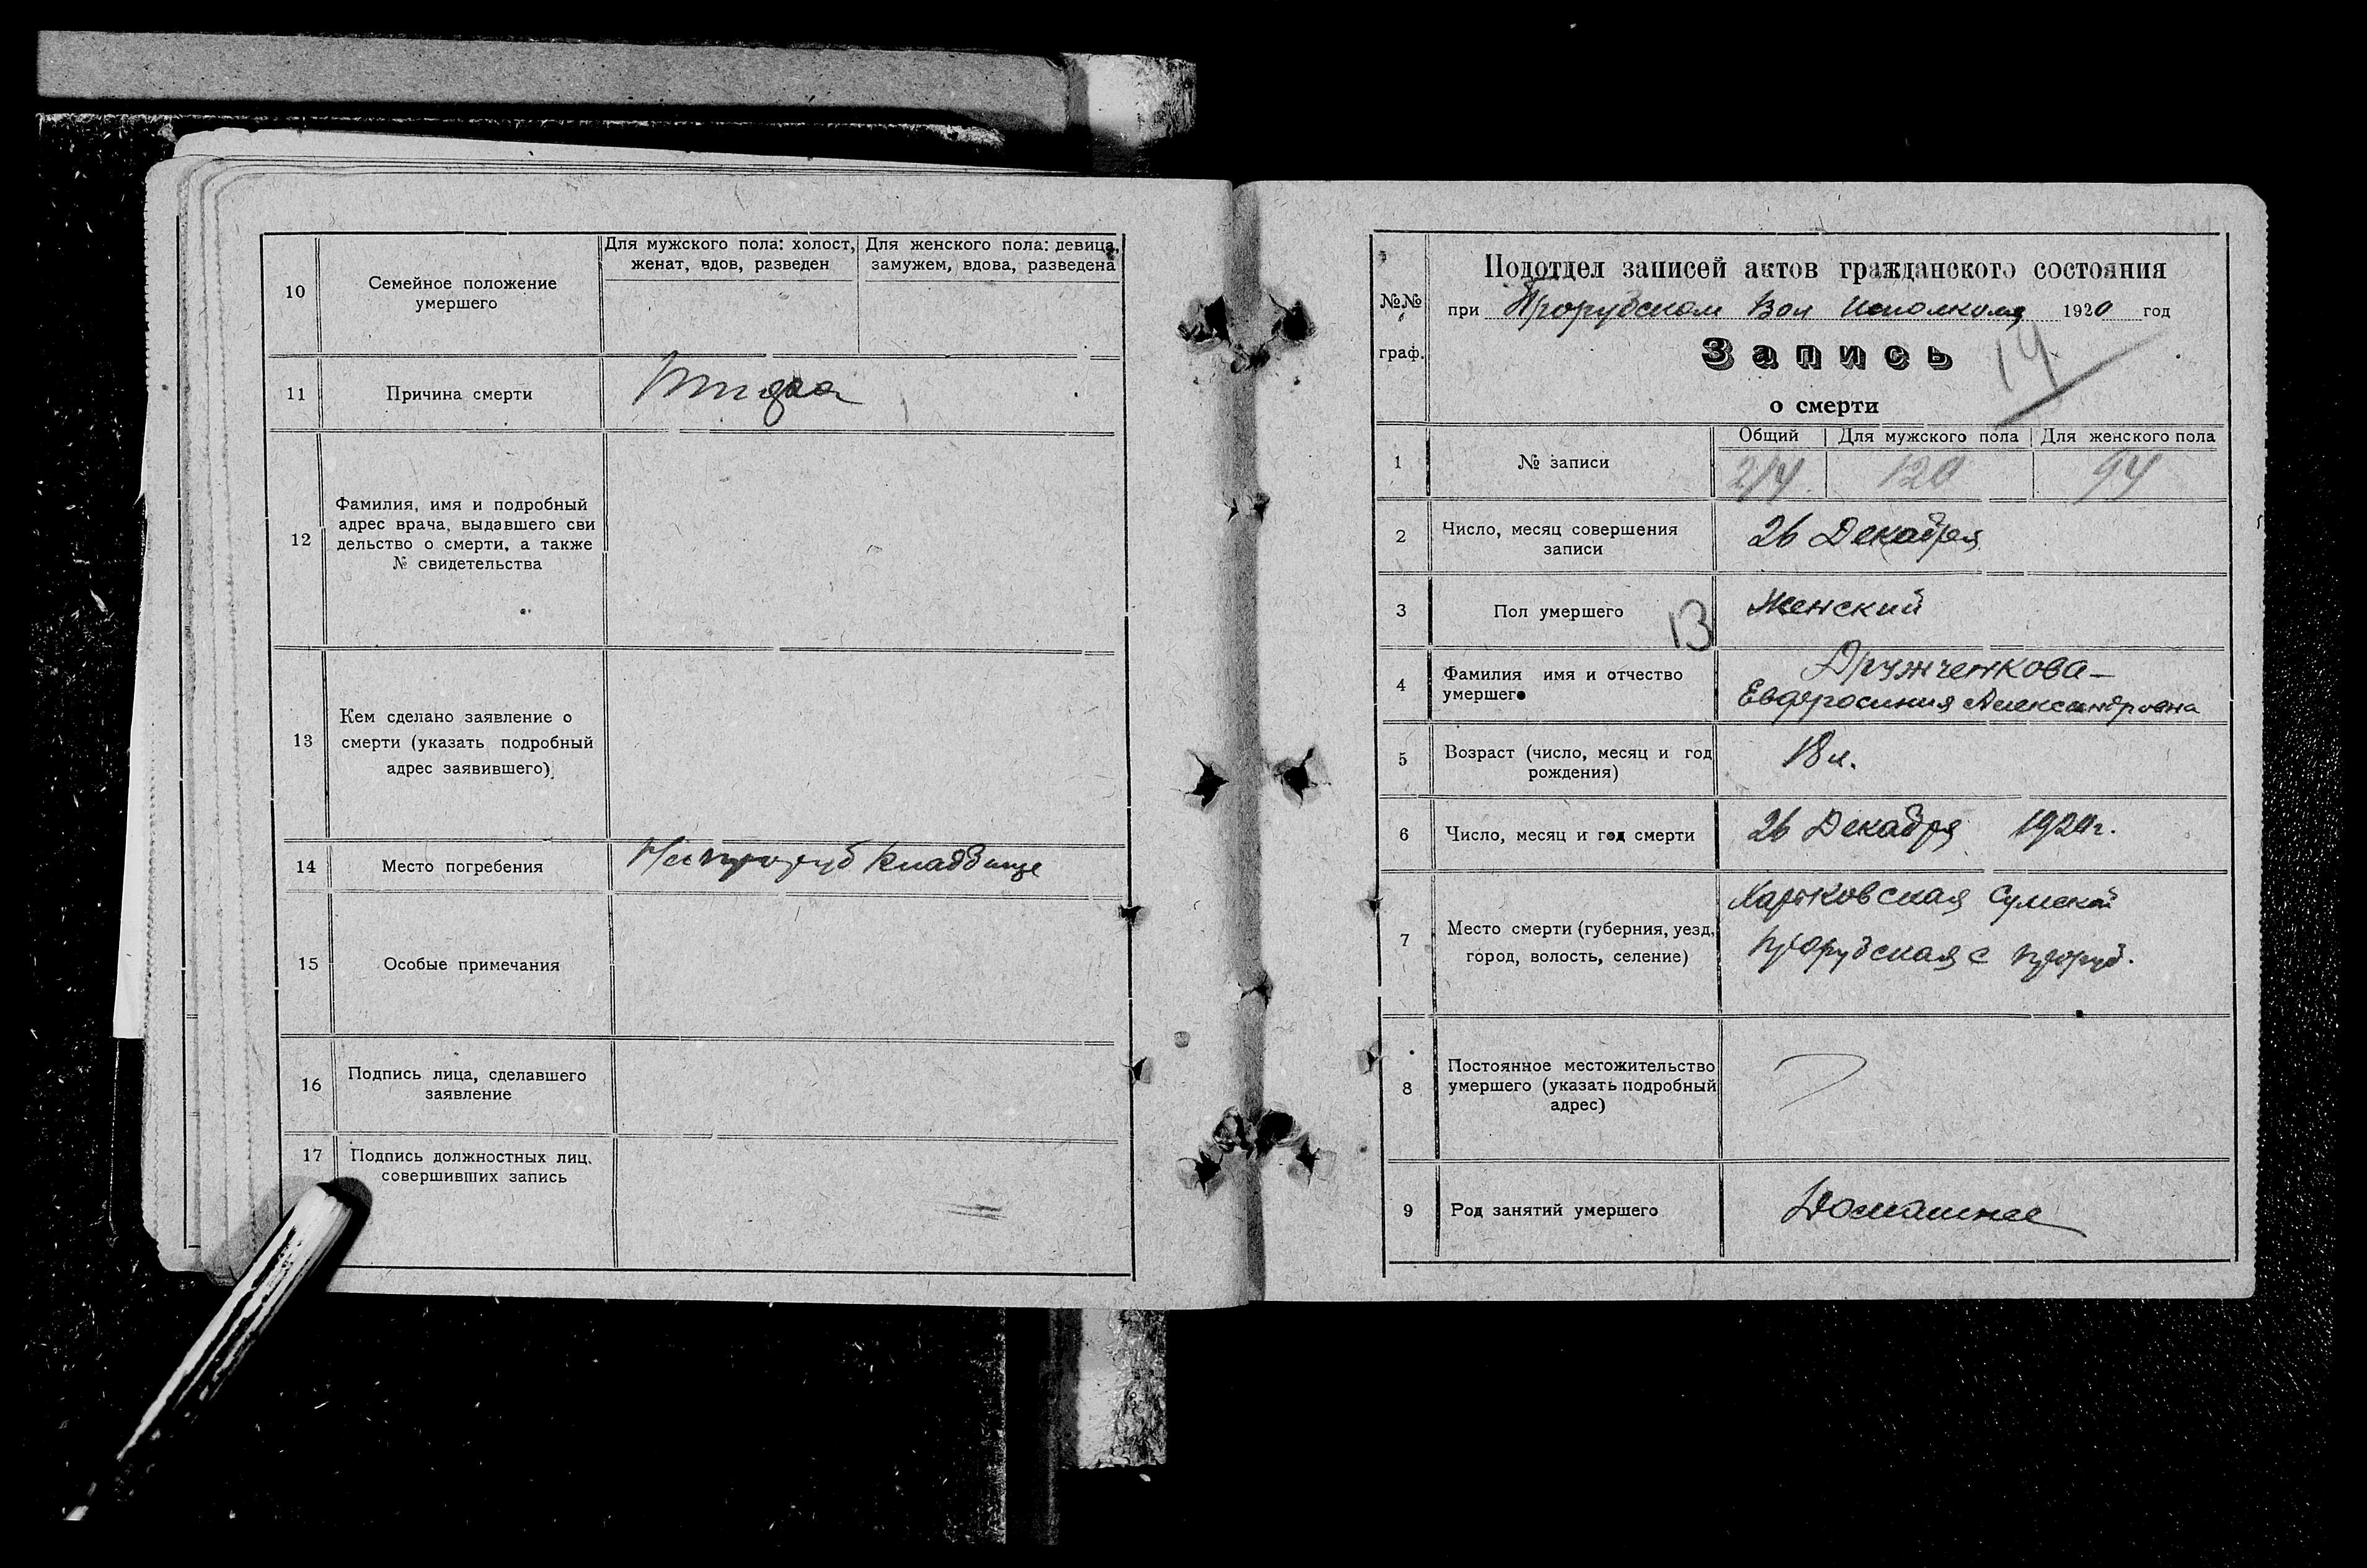 10
Семейное положение
умершего
Для мужского пола: холост,
женат, вдов, разведен
Для женского пола: девица,
замужем, вдова, разведена
11
Причина смерти
12
Фамилия, имя и подробный
адрес врача, выдавшего сви
дельство о смерти, а также
№ свидетельства
13
Кем сделано заявление о
смерти (указать подробный
адрес заявившего)
14
Место погребения
На прoруб кладбище
15
Особые примечания
16
Подпись лица, сделавшего
заявление
17
Подпись должностных лиц,
совершивших запись
№№
граф.
Подотдел записей актов гражданского состояния
при Прорубском Вол Исполкома 1920 год
Запись
14
о смерти
1
№ записи
Общий
Для мужского пола
Для женского пола
214
120
94
2
Число, месяц совершения
записи
26 Декабря
3
Пол умершего
13
Женский
4
Фамилия имя и отчество
умершего
Дружченкова
Евфросиния Александровна
5
Возраст (число, месяц и год
рождения)
18 л.
6
Число, месяц и год смерти
26 Декабря 1920 г.
7
Место смерти (губерния, уезд,
город, волость, селение)
Харьковская Сумской
Прорубская с Проруб.
8
Постоянное местожительство
умершего (указать подробный
адрес)
9
Род занятий умершего
Домашнее